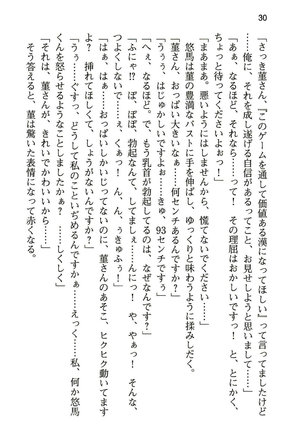 30
「さっき菫さん、『このゲームを通して価値ある漢になってほしい』って言ってましたけど
……俺に、それを成し遂げる自信があること、お見せしようと思いまして……」
「あぁ、なるほど、それなら……って！ その理屈はおかしいですっ！ と、とにかく、
ちょっと待ってくださいよぉっ！」
「まあまあ。悪いようにはしませんから、慌てないでください……」
悠馬は菫の豊満なバストに手を伸ばし、ゆっくりと味わうように揉みしだく。
「菫さん、おっぱい大きいなぁ……何センチあるんですか？」
「うぅ……はじゅかしいですよぉ……きゅ、93センチですぅ」
「へぇ、なるほど。で、もう乳首が勃起してるのは、なぜなんです？」
「ふにゃ!? ぼ、ぼぼ、勃起なんて、してましぇ……んにっ！ や、やぁっ！ そんな、
つよくしないで……っ、くぅっ！ ん、んぅ……ぅきゅふぅ！」
「はぁ、はぁ……おっぱいしかいじってないのに、菫さんのあそこ、ヒクヒク動いてます
よ？ 挿れてほしくて、しょうがないんですか？」
「うぅ……ぐすっ、どうして私のこといぢめるんですかぁ……えっく……私、何か悠馬
くんを怒らせるようなことしましたかぁ？ ……しくしく」
「それは、菫さんが、きれいでかわいいから……」
そう答えると、菫は驚いた表情になって赤くなる。